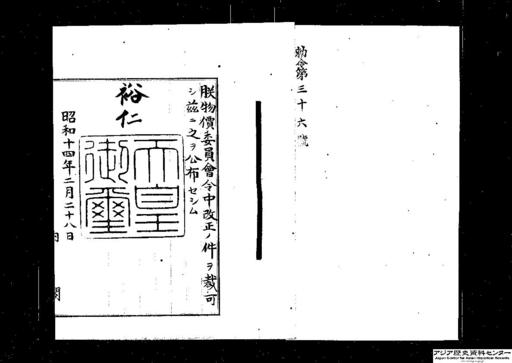 勅令第三十六號
朕物價委員會令中改正ノ件ヲ裁可
シ茲ニ之ヲ公布セシム
裕仁
天皇
御璽
昭和十四年二月二十八日
内閣
アジア歴史資料センター
Japan Center for Asian Historical Records